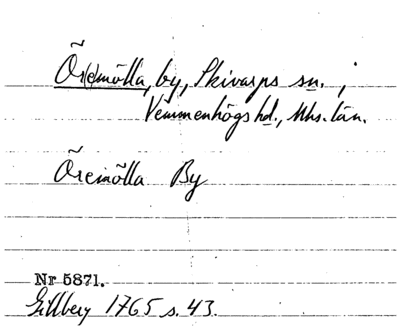 Ör(e)mölla, by, Skivarps sn.,
Vemmenhögs hd., Mhs. län.
Öremölla By
Nr 5871.
Gillberg 1765 s. 43.